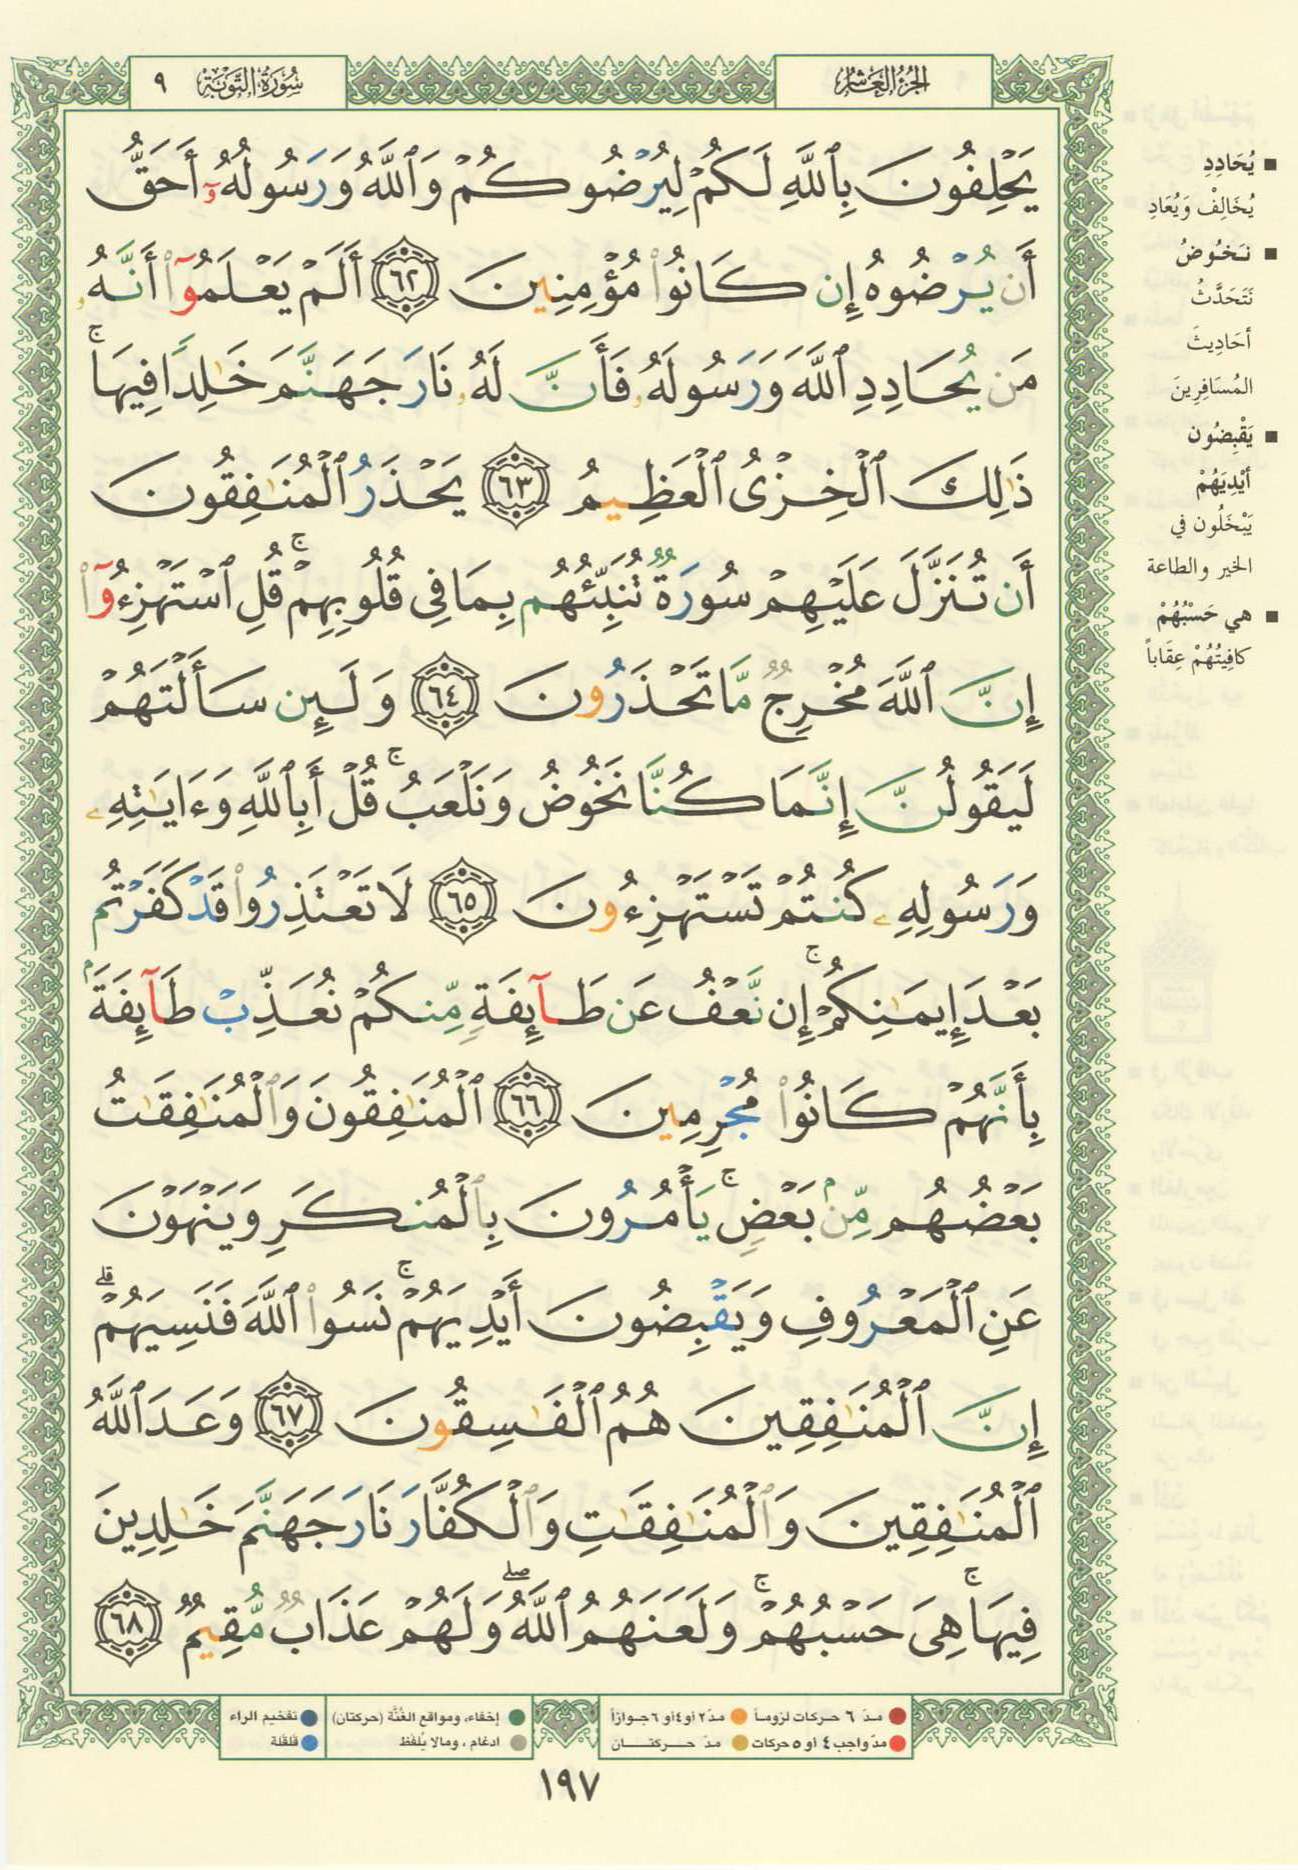 الجزء العاشر
سورة التوبة ٩
يَحْلِفُونَ بِٱللَّهِ لَكُمْ لِيُرْضُوكُمْ وَٱللَّهُ وَرَسُولُهُۥٓ أَحَقُّ
أَن يُرْضُوهُ إِن كَانُوا۟ مُؤْمِنِينَ ٦٢ أَلَمْ يَعْلَمُوٓا۟ أَنَّهُۥ
مَن يُحَادِدِ ٱللَّهَ وَرَسُولَهُۥ فَأَنَّ لَهُۥ نَارَ جَهَنَّمَ خَٰلِدًا فِيهَا ۚ
ذَٰلِكَ ٱلْخِزْىُ ٱلْعَظِيمُ ٦٣ يَحْذَرُ ٱلْمُنَٰفِقُونَ
أَن تُنَزَّلَ عَلَيْهِمْ سُورَةٌ تُنَبِّئُهُم بِمَا فِى قُلُوبِهِمْ ۚ قُلِ ٱسْتَهْزِءُوٓا۟
إِنَّ ٱللَّهَ مُخْرِجٌ مَّا تَحْذَرُونَ ٦٤ وَلَئِن سَأَلْتَهُمْ
لَيَقُولُنَّ إِنَّمَا كُنَّا نَخُوضُ وَنَلْعَبُ ۚ قُلْ أَبِٱللَّهِ وَءَايَٰتِهِۦ
وَرَسُولِهِۦ كُنتُمْ تَسْتَهْزِءُونَ ٦٥ لَا تَعْتَذِرُوا۟ قَدْ كَفَرْتُم
بَعْدَ إِيمَٰنِكُمْ ۚ إِن نَّعْفُ عَن طَآئِفَةٍ مِّنكُمْ نُعَذِّبْ طَآئِفَةًۢ
بِأَنَّهُمْ كَانُوا۟ مُجْرِمِينَ ٦٦ ٱلْمُنَٰفِقُونَ وَٱلْمُنَٰفِقَٰتُ
بَعْضُهُم مِّنۢ بَعْضٍ ۚ يَأْمُرُونَ بِٱلْمُنكَرِ وَيَنْهَوْنَ
عَنِ ٱلْمَعْرُوفِ وَيَقْبِضُونَ أَيْدِيَهُمْ ۚ نَسُوا۟ ٱللَّهَ فَنَسِيَهُمْ ۗ
إِنَّ ٱلْمُنَٰفِقِينَ هُمُ ٱلْفَٰسِقُونَ ٦٧ وَعَدَ ٱللَّهُ
ٱلْمُنَٰفِقِينَ وَٱلْمُنَٰفِقَٰتِ وَٱلْكُفَّارَ نَارَ جَهَنَّمَ خَٰلِدِينَ
فِيهَا ۚ هِىَ حَسْبُهُمْ ۚ وَلَعَنَهُمُ ٱللَّهُ ۖ وَلَهُمْ عَذَابٌ مُّقِيمٌ ٦٨
يُحَادِدِ
يُخَالِفْ وَيُعَادِ
نَخُوضُ
نَتَحَدَّثُ
أحَادِيثَ
المُسَافِرِينَ
يَقْبِضُون
أيْدِيَهُمْ
يَبْخَلُون في
الخير والطاعة
هي حَسْبُهُمْ
كافِيتُهُمْ عِقَاباً
مدّ ٦ حركات لزوماً
مدّ ٢ أو ٤ أو ٦ جوازاً
مدّ واجب ٤ أو ٥ حركات
مدّ حركتان
إخفاء، ومواقع الغُنَّة (حركتان)
تفخيم الراء
ادغام، ومالا يُلفَظ
قلقلة
١٩٧